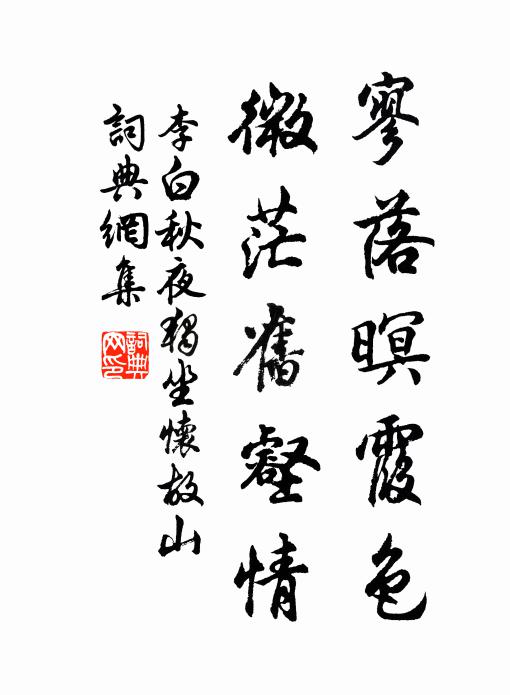 寥落暝霞色
微茫舊壑情
李白秋夜獨坐懷故山
詞典網集
詞典網印